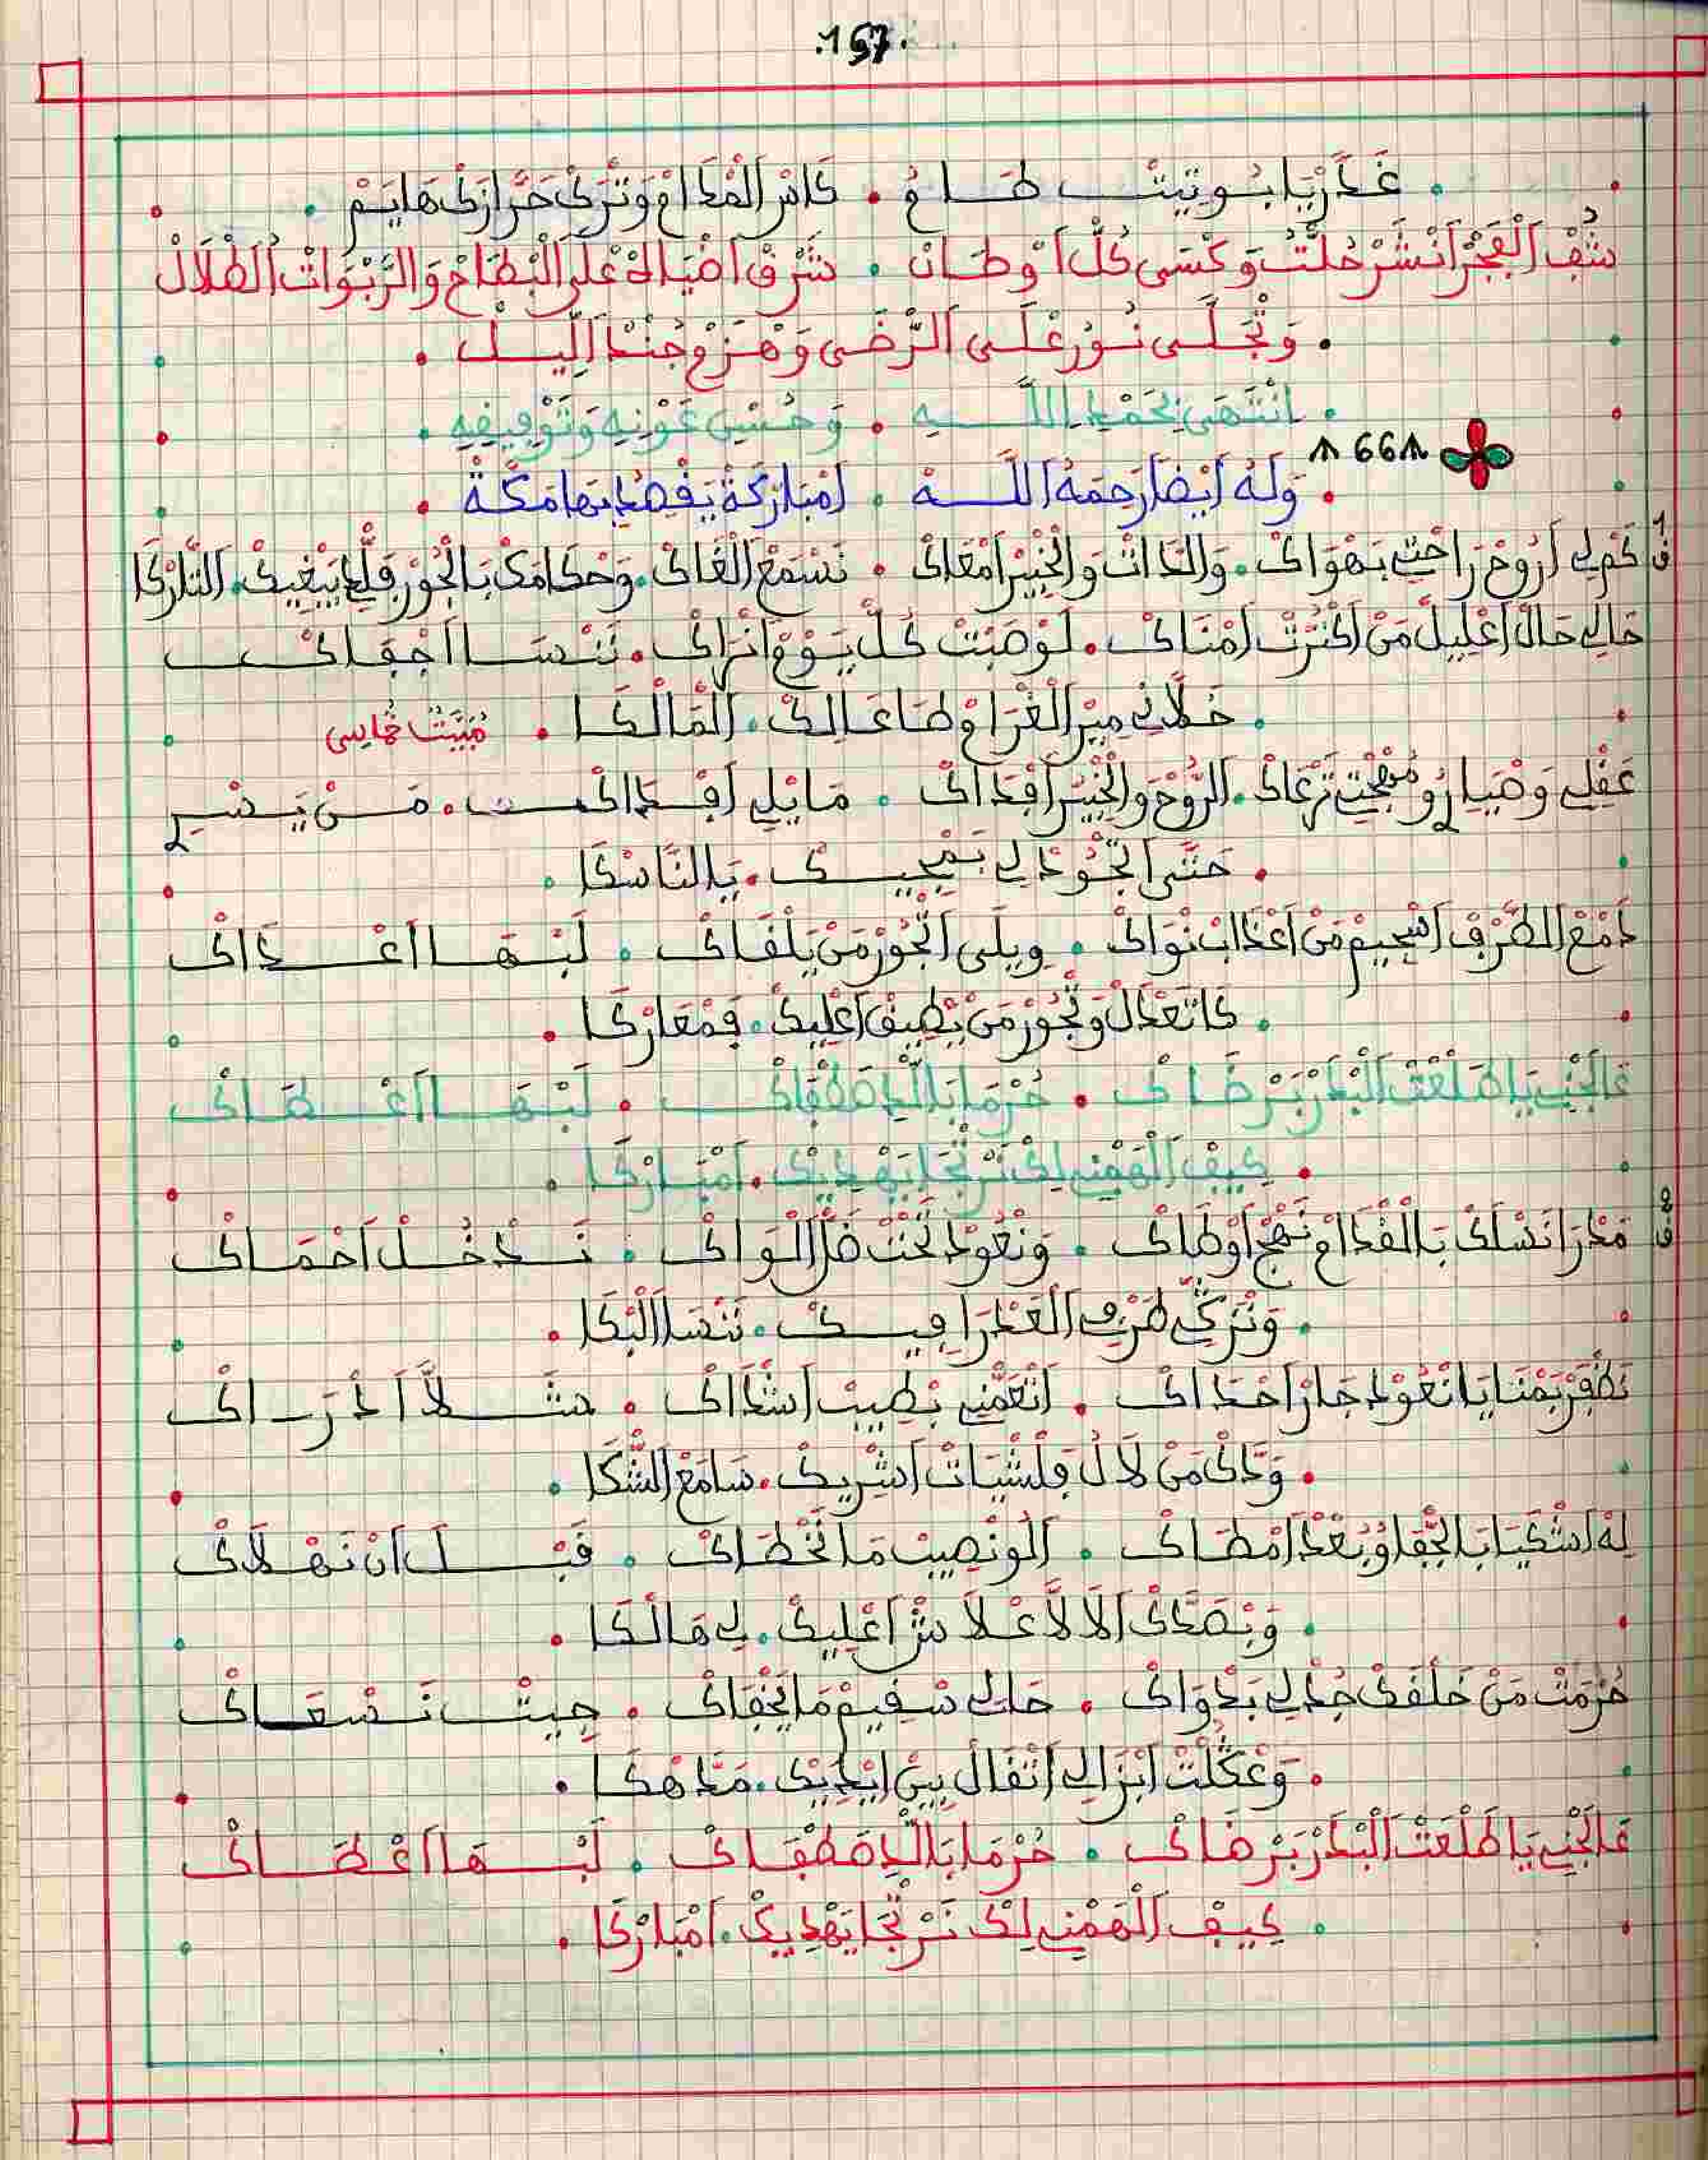 .157.
غَدَّرْ يَا بُو تِيتْ طَاعْ . كَاسْ المْدَامْ وَتْرَكْ حَرَّازَكْ هَايَمْ .
شُفِ الْفَجْرْ أَنْشَرْ حُلْتُ وَكْسَى كُلّْ اوْطَانْ . شَرْقْ اضْيَاهْ عْلَى الْبْطَاحْ وَالرَّبْوَاتْ الطْلَالْ
. وَتْجَلَّى نُورْ عْلَى الرْضَى وَهْزَمْ جُنْدْ اللِّيلْ .
. انْتَهَى بِحَمْدِ اللَّهِ . وَحُسْنِ عَوْنِهِ وَتَوْفِيقِهِ .
66
. وَلَهُ أَيْضاً رَحِمَهُ اللَّه . امْبَارْكَة يَقْصِدُ بِهَا مَكَّةْ .
كَمْ لِي أَرُوحْ رَاحْتِي بَهْوَاكْ . وَالدَّاتْ وَالْخْبِيرْ امْعَاكْ . نَسْمَعْ الْغَاكْ . وَحْكَامَكْ بَالْجُورْ قَلْبِي يَبْغِيكْ . التَّارْكَا
حَالِي حَالْ اعْلِيلْ مَنْ اكْثَرْتْ امْنَاكْ . لَوْ صَبْتْ كُلّْ يَوْمْ انْرَاكْ . نَنْسَا اجْفَاكْ
. خَلَّانِي مِيرْ الْغْرَامْ طَاعَ لِكْ . الْمَالْكَا . مُبَيَّتْ خْمَاسِي
عَقْلِي وَصْيَارُو مُهْجْتِي تَرْعَاكْ . الرُّوحْ وَالْخْبِيرْ افْدَاكْ . مَا يْلِي افْدَاكْ . مَنْ يَسْرِ
. حَتَّى اتْجُودْ لِي بَمْجِيكْ . يَالنَّاسْكَا .
دَمْعْ الطَّرْفْ اسْجِيمْ مَنْ اعْذَابْ نْوَاكْ . وِيلَى اتْجُورْ مَنْ يَلْقَاكْ . لَبْهَا اعْدَاكْ
. كَا تَعْدَالْ وَتْجُورْ مَنْ يْطِيقْ اعْلِيكْ . فَمْعَارْكَا .
عَالْجْنِي يَا طَلْعَتْ الْبْدَرْ بَرْضَاكْ . حُرْمَا بَاللِّي اصْطْفَاكْ . لَبْهَا اعْطَاكْ
. كِيفْ الْهَمْنِي لِكْ نَرْتْجَا يَهْدِيكْ . امْبَارْكَا .
مَدْرَا نَسْلَكْ بَالْقْدَامْ نَهْجْ اوْطَاكْ . وَنْعُودْ تَحْتْ ظَلّْ الْوَاكْ . نَدْخُلْ احْمَاكْ
. وَنْزَكِّي طَرْفِ الْعَدْرَا فِيكْ . نَنْسَا الْبْكَا .
نَظْفَرْ بَمْنَايَا انْعُودْ جَارْ احْدَاكْ . اتْعَمّْنِي بَطِيبْ اشْدَاكْ . مَثْلاً ادْرَاكْ
. وَدَّاكْ مَنْ لَالُ فَلْشْيَاتْ اشْرِيكْ . سَامَعْ الشّْكَا .
لِهْ اشْكَيَا بَالجّْفَا وْبُعْدْ امْطَاكْ . الُو نْصِيبْ مَا نَخْطَاكْ . قَبْلَ انْ نَهْلَاكْ
. وَبْصَدَّكْ الَا لَّا عْلَاشْ اعْلِيكْ . لِي هَالْكَا .
حُرْمَتْ مَنْ خَلْقَكْ جُدْ لِي بَدْوَاكْ . حَالِي سْقِيمْ مَا يَخْفَاكْ . جِيتْ نَسْعَاكْ
. وَعْكَلْتْ ابْزَالِي اتْقَالْ بِينْ ايْدِيكْ . مَدَاهْكَا .
عَالْجْنِي يَا طَلْعَتْ الْبْدَرْ بَرْضَاكْ . حُرْمَا بَاللِّي اصْطْفَاكْ . لَبْهَا اعْطَاكْ
. كِيفْ الْهَمْنِي لِكْ نَرْتْجَا يَهْدِيكْ . امْبَارْكَا .